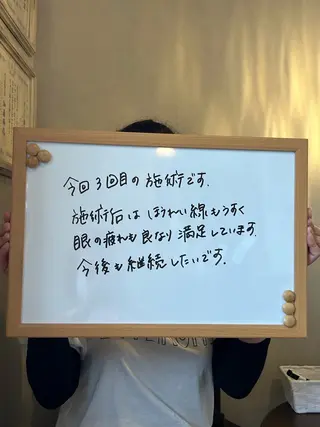 今回3回目の施術です.
施術后はほうれい線もうすく
眼の疲れも良くなり満足しています.
今後も継続したいです.